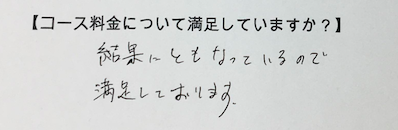 【コース料金について満足していますか?】
結果にともなっているので
満足しております。